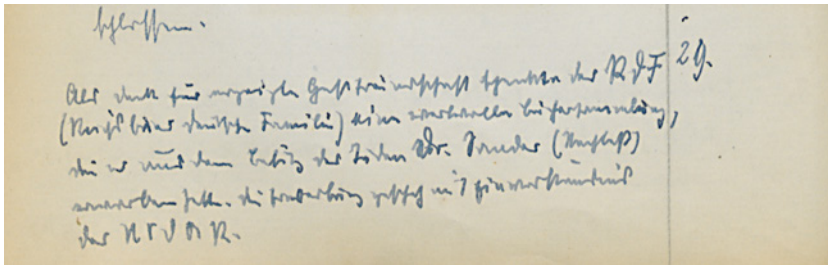 schlossen.
Als Dank für erzeigte Gastfreundschaft schenkte der RDF 29.
(Reichsbund Deutsche Familie) eine wertvolle Büchersammlung,
die er aus dem Besitz des Juden Dr. Sander (Nachlaß)
erworben hatte. Die Erwerbung geschah mit Einverständnis
der NSDAP.